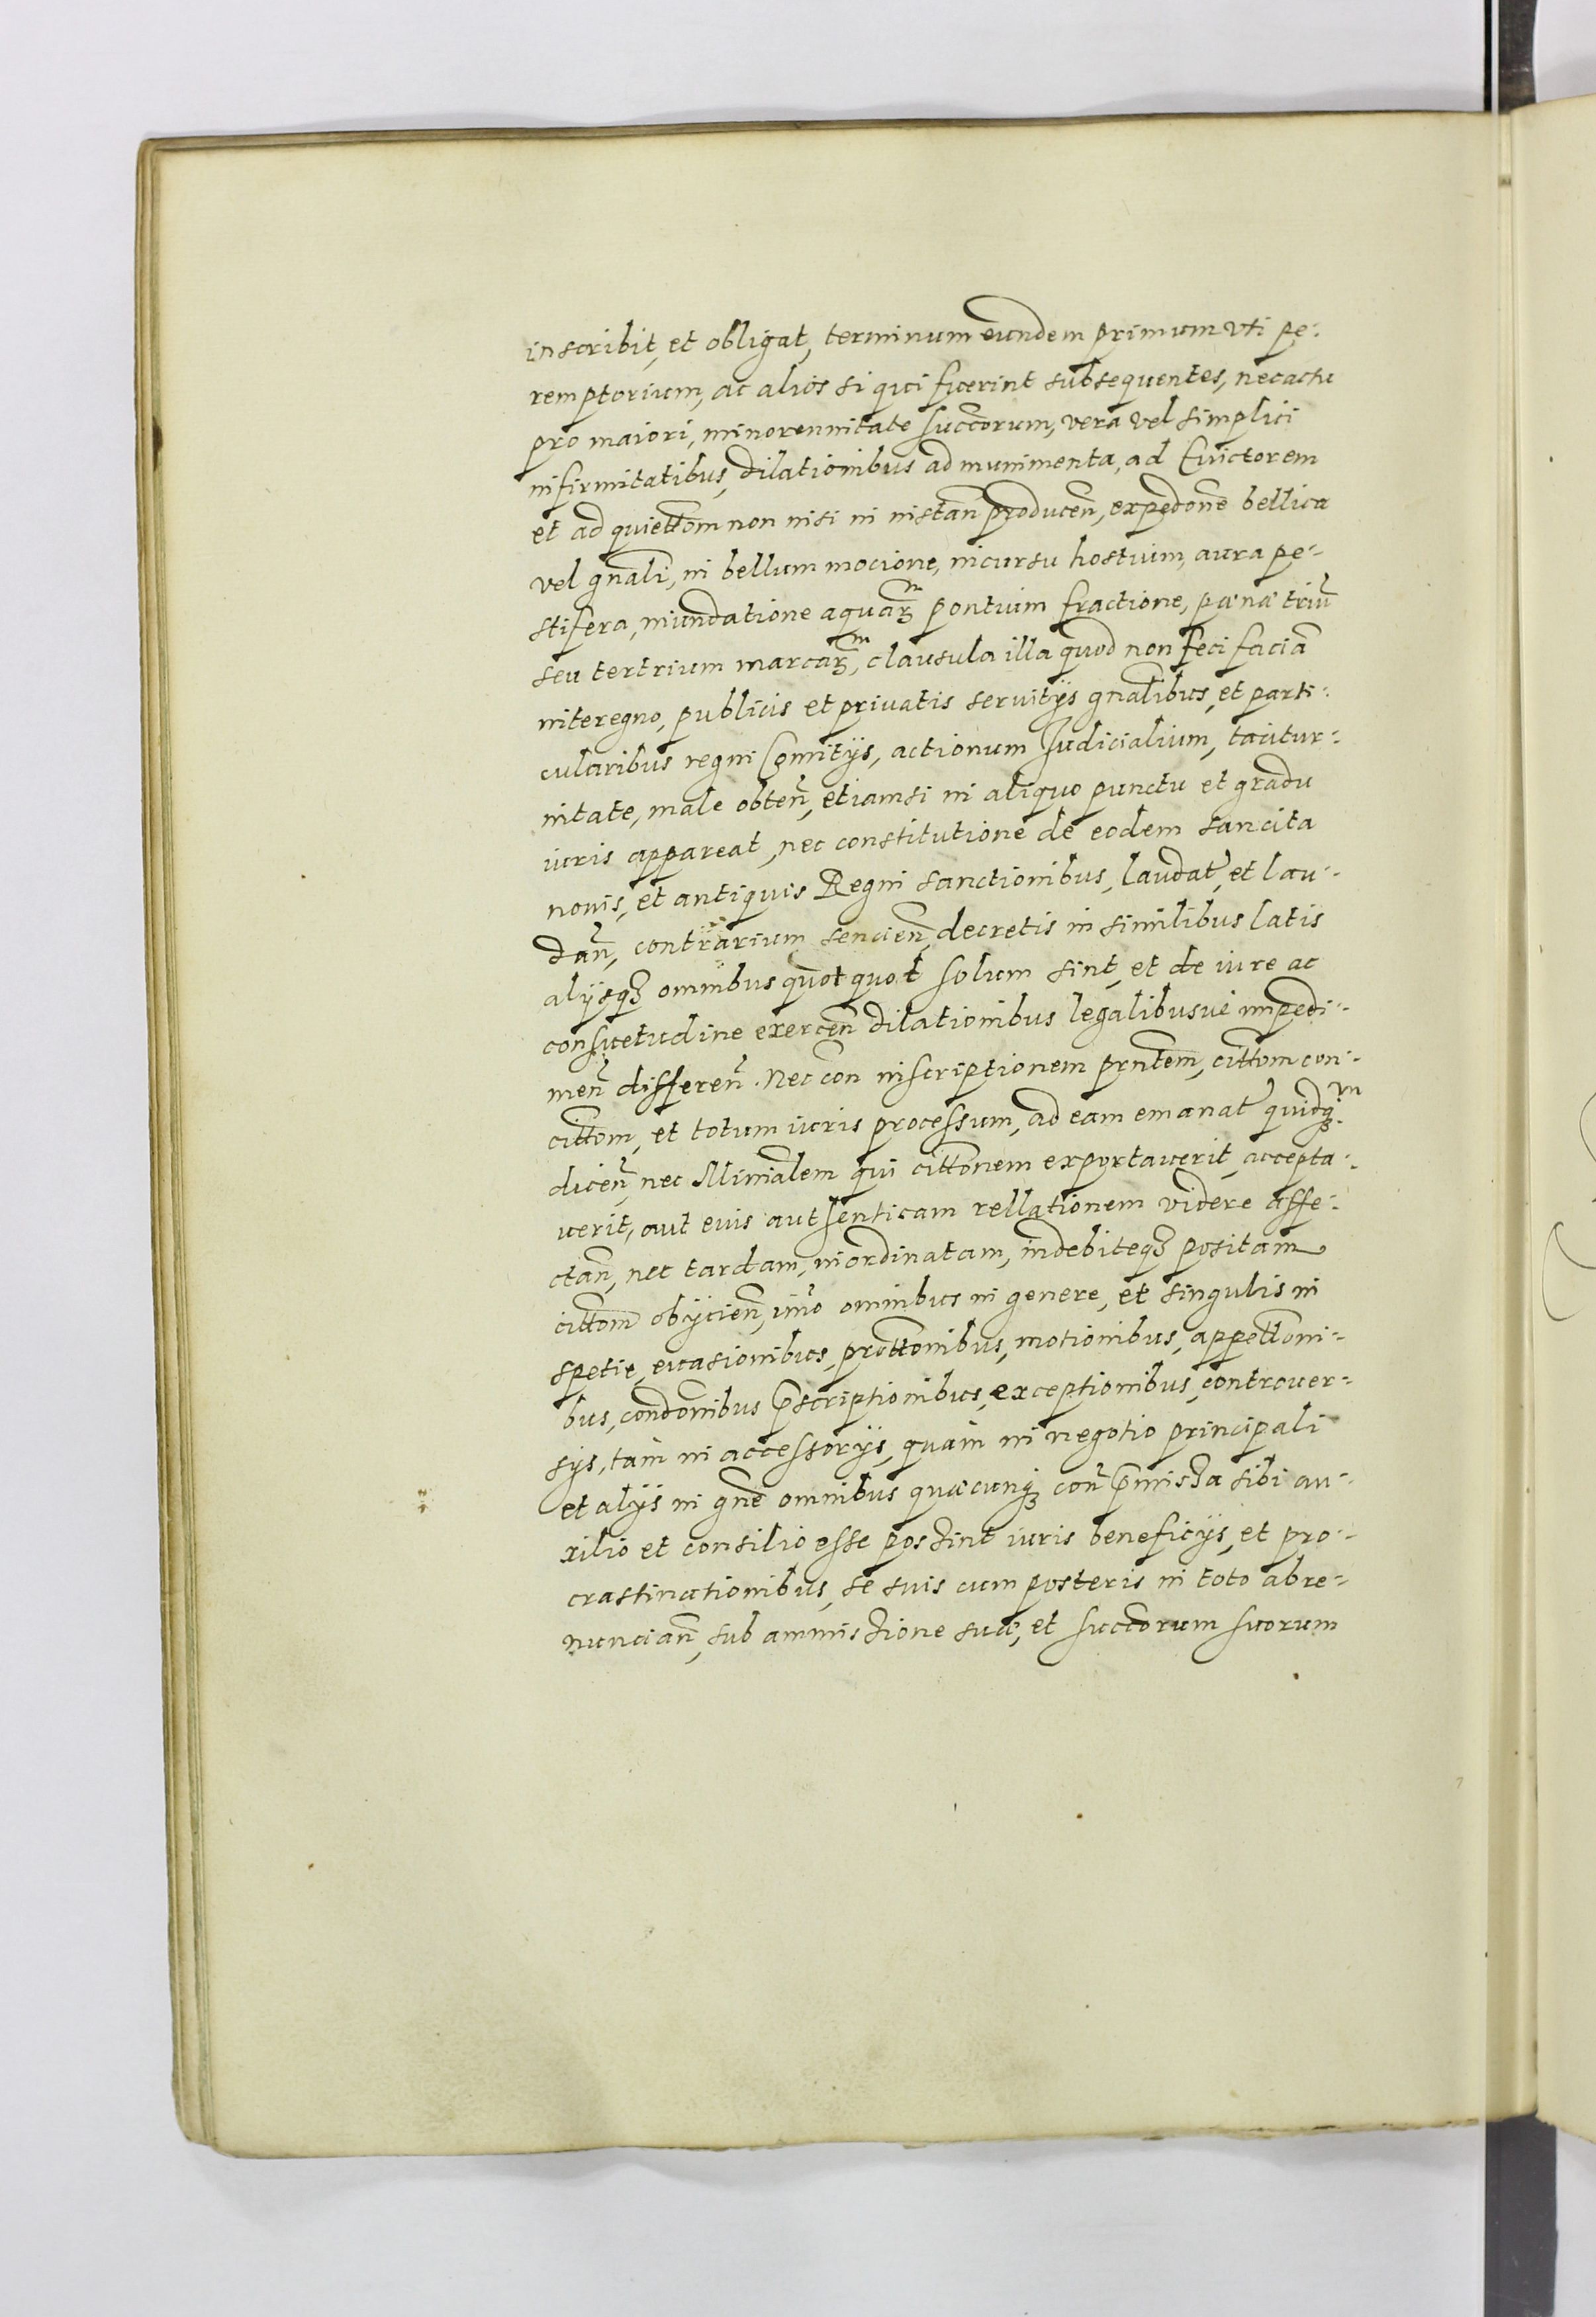 inscribit, et obligat, terminum eundem primum vti pe-
remptorium, ac alios si qui fuerint subsequentes, nec actu
pro maiori, minorennitate succorum, vera vel simplici
infirmitatibus, dilationibus ad munimenta, ad Euictorem
et ad quiettom non nisi in instan̄ producen̄, expedone bellica
vel gnali, in bellum mocione, incursu hostium, aura pe-
stifera, inundatione aquarꝫ pontium fractione, pœnæ triū
seu tertrium marcarꝫ, clausula illa quod non feci faciā
interegno, publicis et priuatis seruitys gnalibus, et parti-
cularibus regni Comitys, actionum Judicialium, tacitur-
nitate, male obten̄, etiamsi in aliquo punctu et gradu
iuris appareat, nec constitutione de eodem sancita
nouis, et antiquis Regni sanctionibus, laudat, et lau-
dan̄, contrarium sencien̄, decretis in similibus latis
alysqꝫ omnibus quot quot solum sint, et de iure ac
consuetudine exercen̄ dilationibus legalibusue impedi-
men̄ differen̄. Nec con inscriptionem prntem, cittom con-
cittom, et totum iuris processum, ad eam emanat quidqꝫ
dicen̄, nec Minialem qui cittonem exportauerit, accepta-
uerit, aut euis autsenticam rellationem videre affe-
ctan̄, nec tardam, inordinatam, indebiteqꝫ positam
cittom obycien̄, imo omnibus in genere, et singulis in
spetie, euasionibus, prottonibus, motionibus, appettoni-
bus, condonibus p̄scriptionibus, exceptionibus, controuer-
sys, tam in accessorys, quam in negotio principali
et alys in gne omnibus quæcunqꝫ con̄ p̄missa sibi au-
xilio et consilio esse possint iuris beneficys, et pro-
crastinationibus, se suis cum posteris in toto abre-
nuncian̄, sub ammissione suæ, et succorum suorum